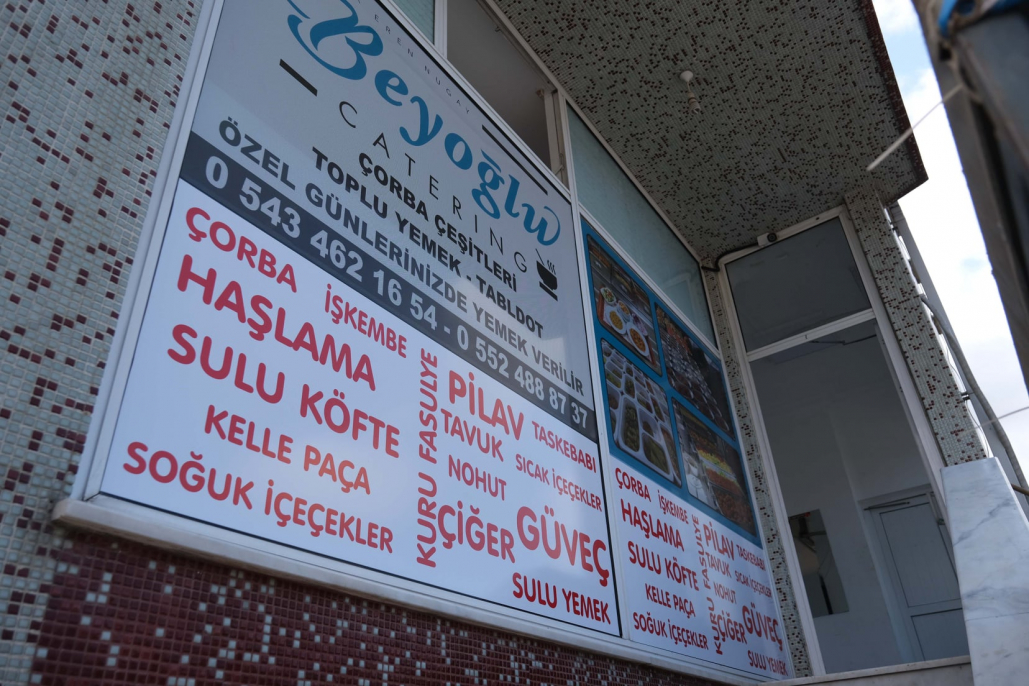 Beyoğlu
CATERING
ÇORBA ÇEŞİTLERİ
TOPLU YEMEK - TABLDOT
ÖZEL GÜNLERİNİZDE YEMEK VERİLİR
0 543 462 16 54 - 0 552 488 87 37
ÇORBA
İŞKEMBE
HAŞLAMA
SULU KÖFTE
KELLE PAÇA
SOĞUK İÇEÇEKLER
KURU FASULYE
PİLAV
TAVUK
TASKEBABI
NOHUT
SICAK İÇEÇEKLER
ÇİĞER
GÜVEÇ
SULU YEMEK
ÇORBA
İŞKEMBE
HAŞLAMA
SULU KÖFTE
KELLE PAÇA
SOĞUK İÇEÇEKLER
KURU FASULYE
PİLAV
TAVUK
TASKEBABI
NOHUT
SICAK İÇEÇEKLER
ÇİĞER
GÜVEÇ
SULU YEMEK